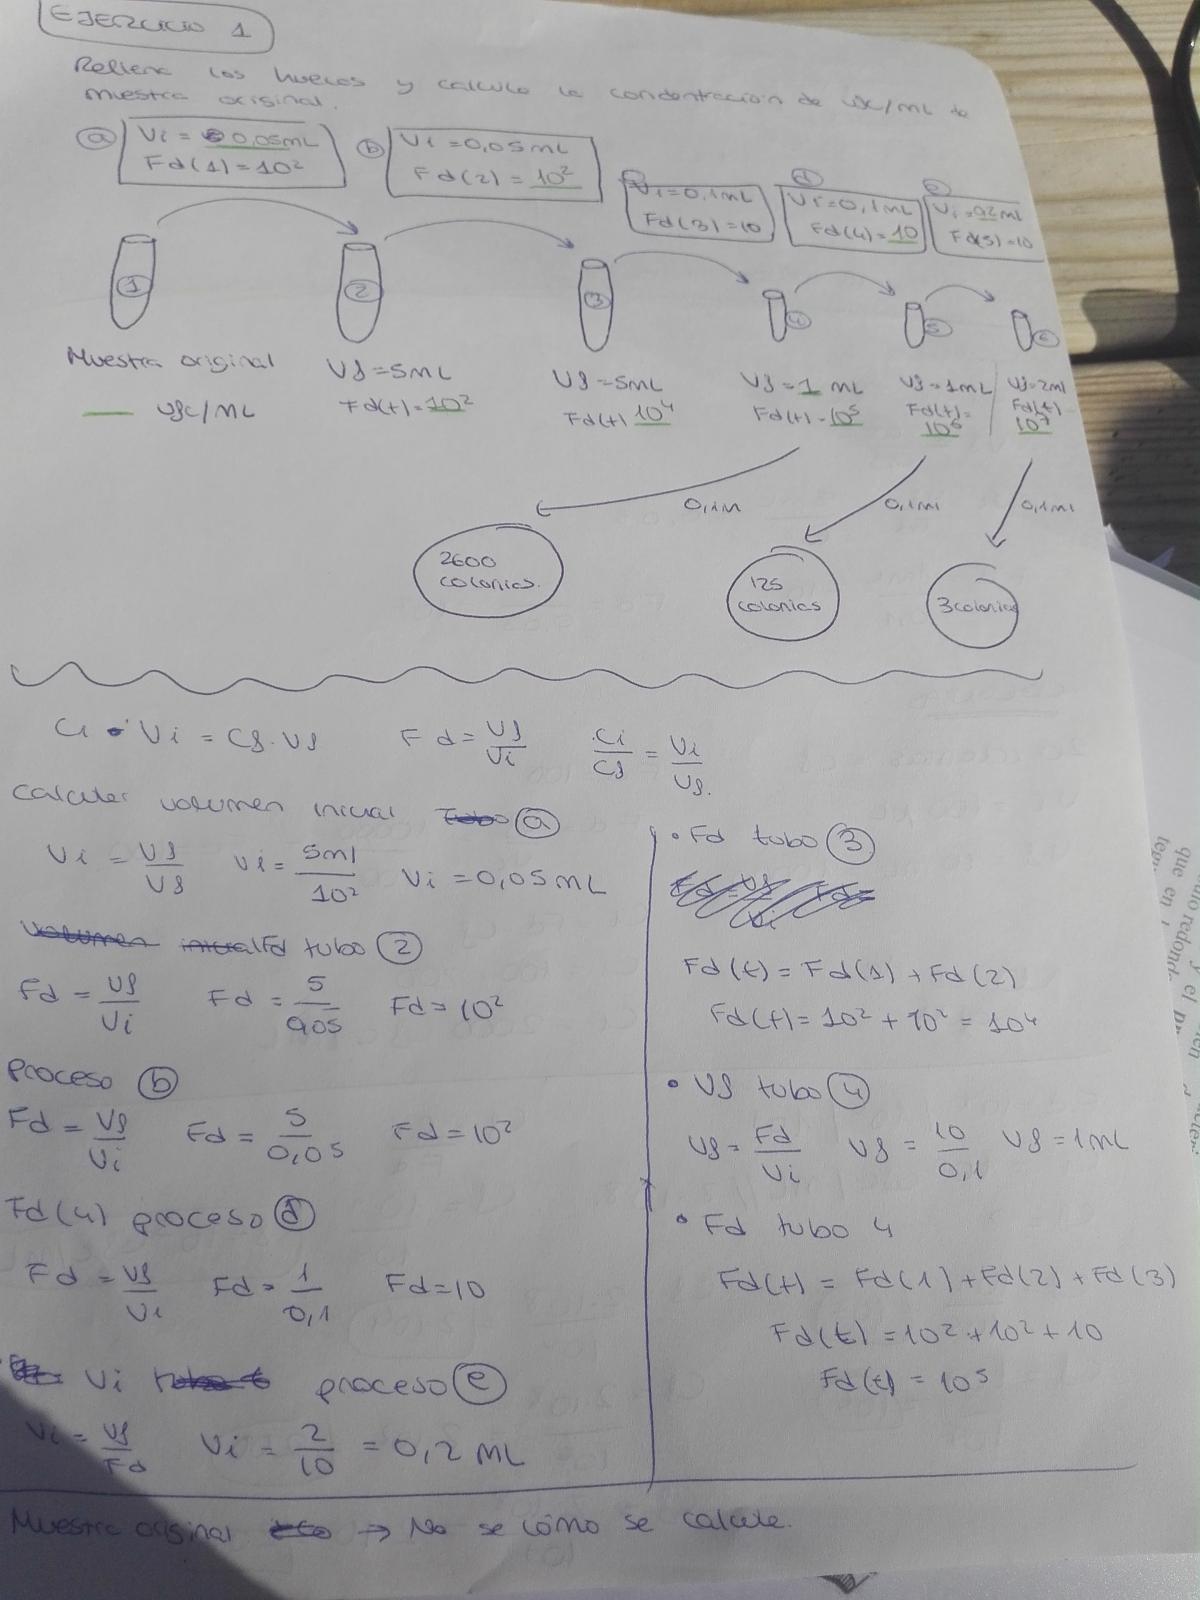 EJERCICIO 1
Rellena los huecos y calcula la condentración de ufc/mL de
muestra original.
a Vi = 0,05mL
Fd(1)=10²
b Vi =0,05mL
Fd(2) = 10²
Vi=0,1mL
Fd(3)=10
d Vi=0,1mL
Fd(4)=10
e Vi=0,2mL
Fd(5)=10
1
2
3
4
5
6
Muestra original
___ ufc/mL
Vf=5mL
Fd(t)=10²
Vf=5mL
Fd(t) 10⁴
Vf=1 mL
Fd(t)=10⁵
Vf=1mL
Fd(t)=
10⁶
Vf=2ml
Fd(t)
10⁷
0,1m
0,1ml
0,1ml
2600
colonias.
125
colonias
3colonias
Ci · Vi = Cf · Vf Fd = Vf/Vi Ci/Cf = Vi/Vf.
calcular volumen inicial a
Vi = Vf/Vf Vi = 5ml/10² Vi = 0,05mL
Fd tubo 2
Fd = Vf/Vi Fd = 5/0,05 Fd = 10²
proceso b
Fd = Vf/Vi Fd = 5/0,05 Fd = 10²
Fd(4) proceso d
Fd = Vf/Vi Fd = 1/0,1 Fd=10
Vi proceso e
Vi = Vf/Fd Vi = 2/10 = 0,2 mL
• Fd tubo 3
Fd(t) = Fd(1) + Fd(2)
Fd(t) = 10² + 10² = 10⁴
• Vf tubo 4
Vf = Fd/Vi Vf = 10/0,1 Vf = 1mL
• Fd tubo 4
Fd(t) = Fd(1) + Fd(2) + Fd(3)
Fd(t) = 10² + 10² + 10
Fd(t) = 10⁵
Muestra original → No se cómo se calcule.